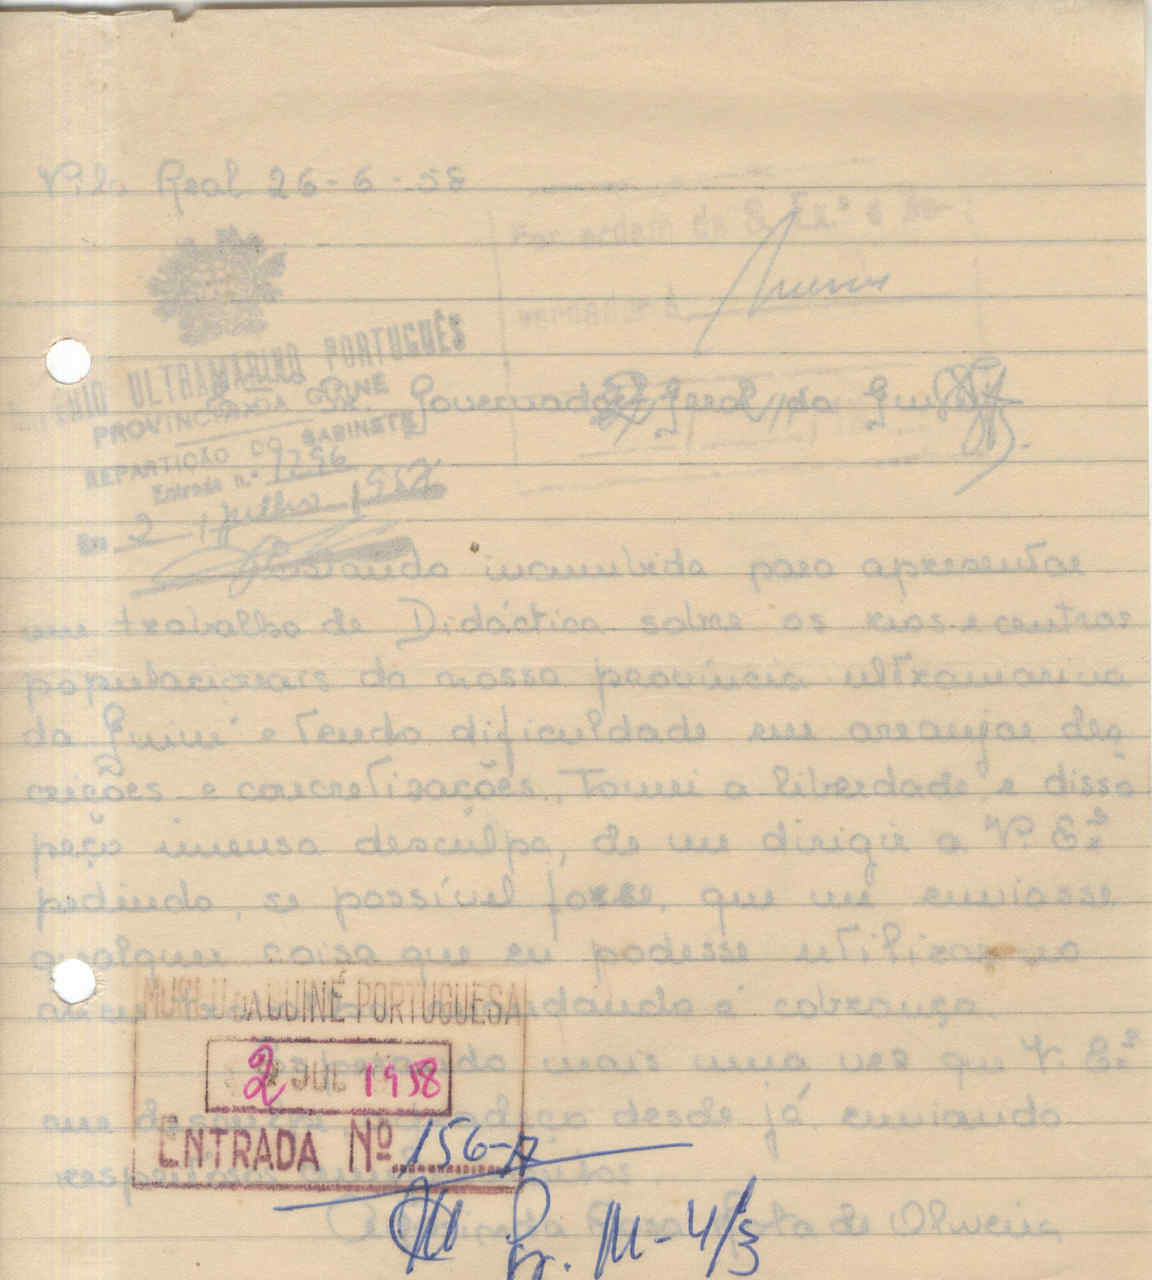 Vila Real 26-6-58
Por ordem de S. Ex.ª o Go-
vernador à
ULTRAMARINO PORTUGUÊS
PROVÍNCIA DA GUINÉ
REPARTIÇÃO DO GABINETE
Entrada n.º 1296
Em 2 / julho / 195
Sr. Governador Geral da Guiné
incumbida para apresentar
um trabalho de Didáctica sobre os rios e centros
populacionais da nossa província ultramarina
da Guiné e tendo dificuldade em arranjar des
crições e concretisações, tomei a liberdade, e disso
peço imensa desculpa, de me dirigir a V. Ex.ª
pedindo, se possível fosse, que me enviasse
qualquer coisa que eu podesse utilizar no
meu mandando à cobrança.
mais uma vez que V. Ex.ª
me desde já, enviando
MUSEU DA GUINÉ PORTUGUESA
2 JUL 1958
ENTRADA Nº 156-A
de Oliveira
Pr. M-4/3